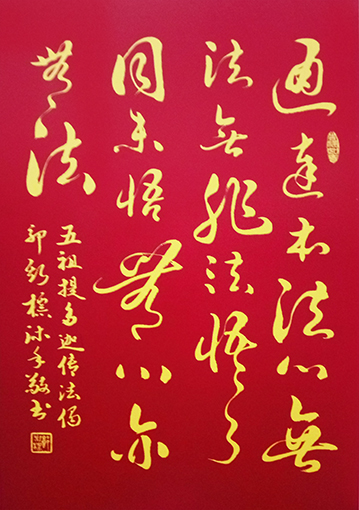 通達本法心無
法無非法悟了
同未悟無心亦
無法
五祖提多迦传法偈
標沐手敬书